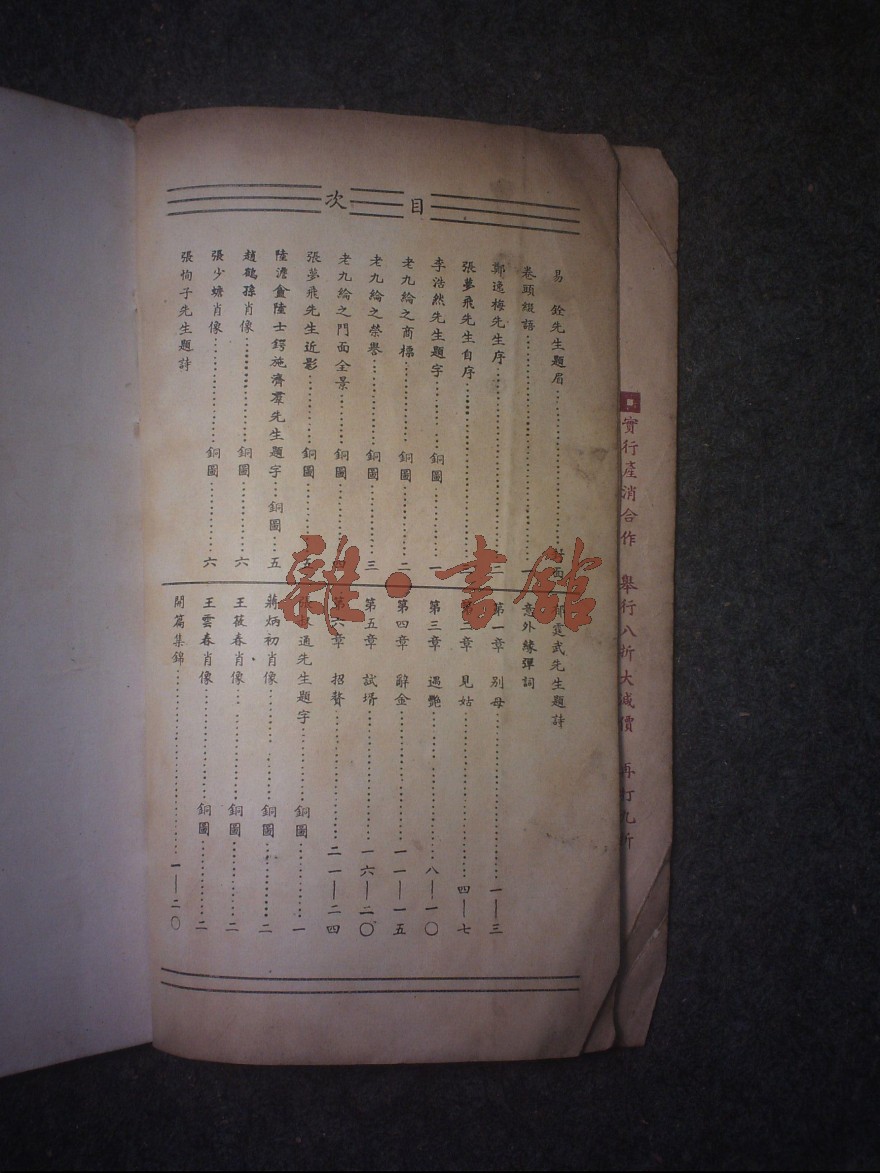 目次
易 銓先生題眉
卷頭綴語
鄭逸梅先生序
張夢飛先生自序
李浩然先生題字 銅圖 一
老九綸之商標 銅圖 二
老九綸之榮譽 銅圖 三
老九綸之門面全景 銅圖 四
張夢飛先生近影 銅圖
陸澹盦陸士諤施濟羣先生題字 銅圖 五
趙鶴孫肖像 銅圖 六
張少蟾肖像 銅圖 六
張恂子先生題詩
霆武先生題詩
意外緣彈詞
第一章 別母 一—三
第二章 見姑 四—七
第三章 遇艷 八—一〇
第四章 辭金 一一—一五
第五章 試壻 一六—二〇
第六章 招贅 二一—二四
通先生題字 銅圖 一
蔣炳初肖像 銅圖 二
王筱春肖像 銅圖 二
王雲春肖像 銅圖 二
開篇集錦 一—二〇
實行產消合作 舉行八折大減價 再打九折
雜·書館